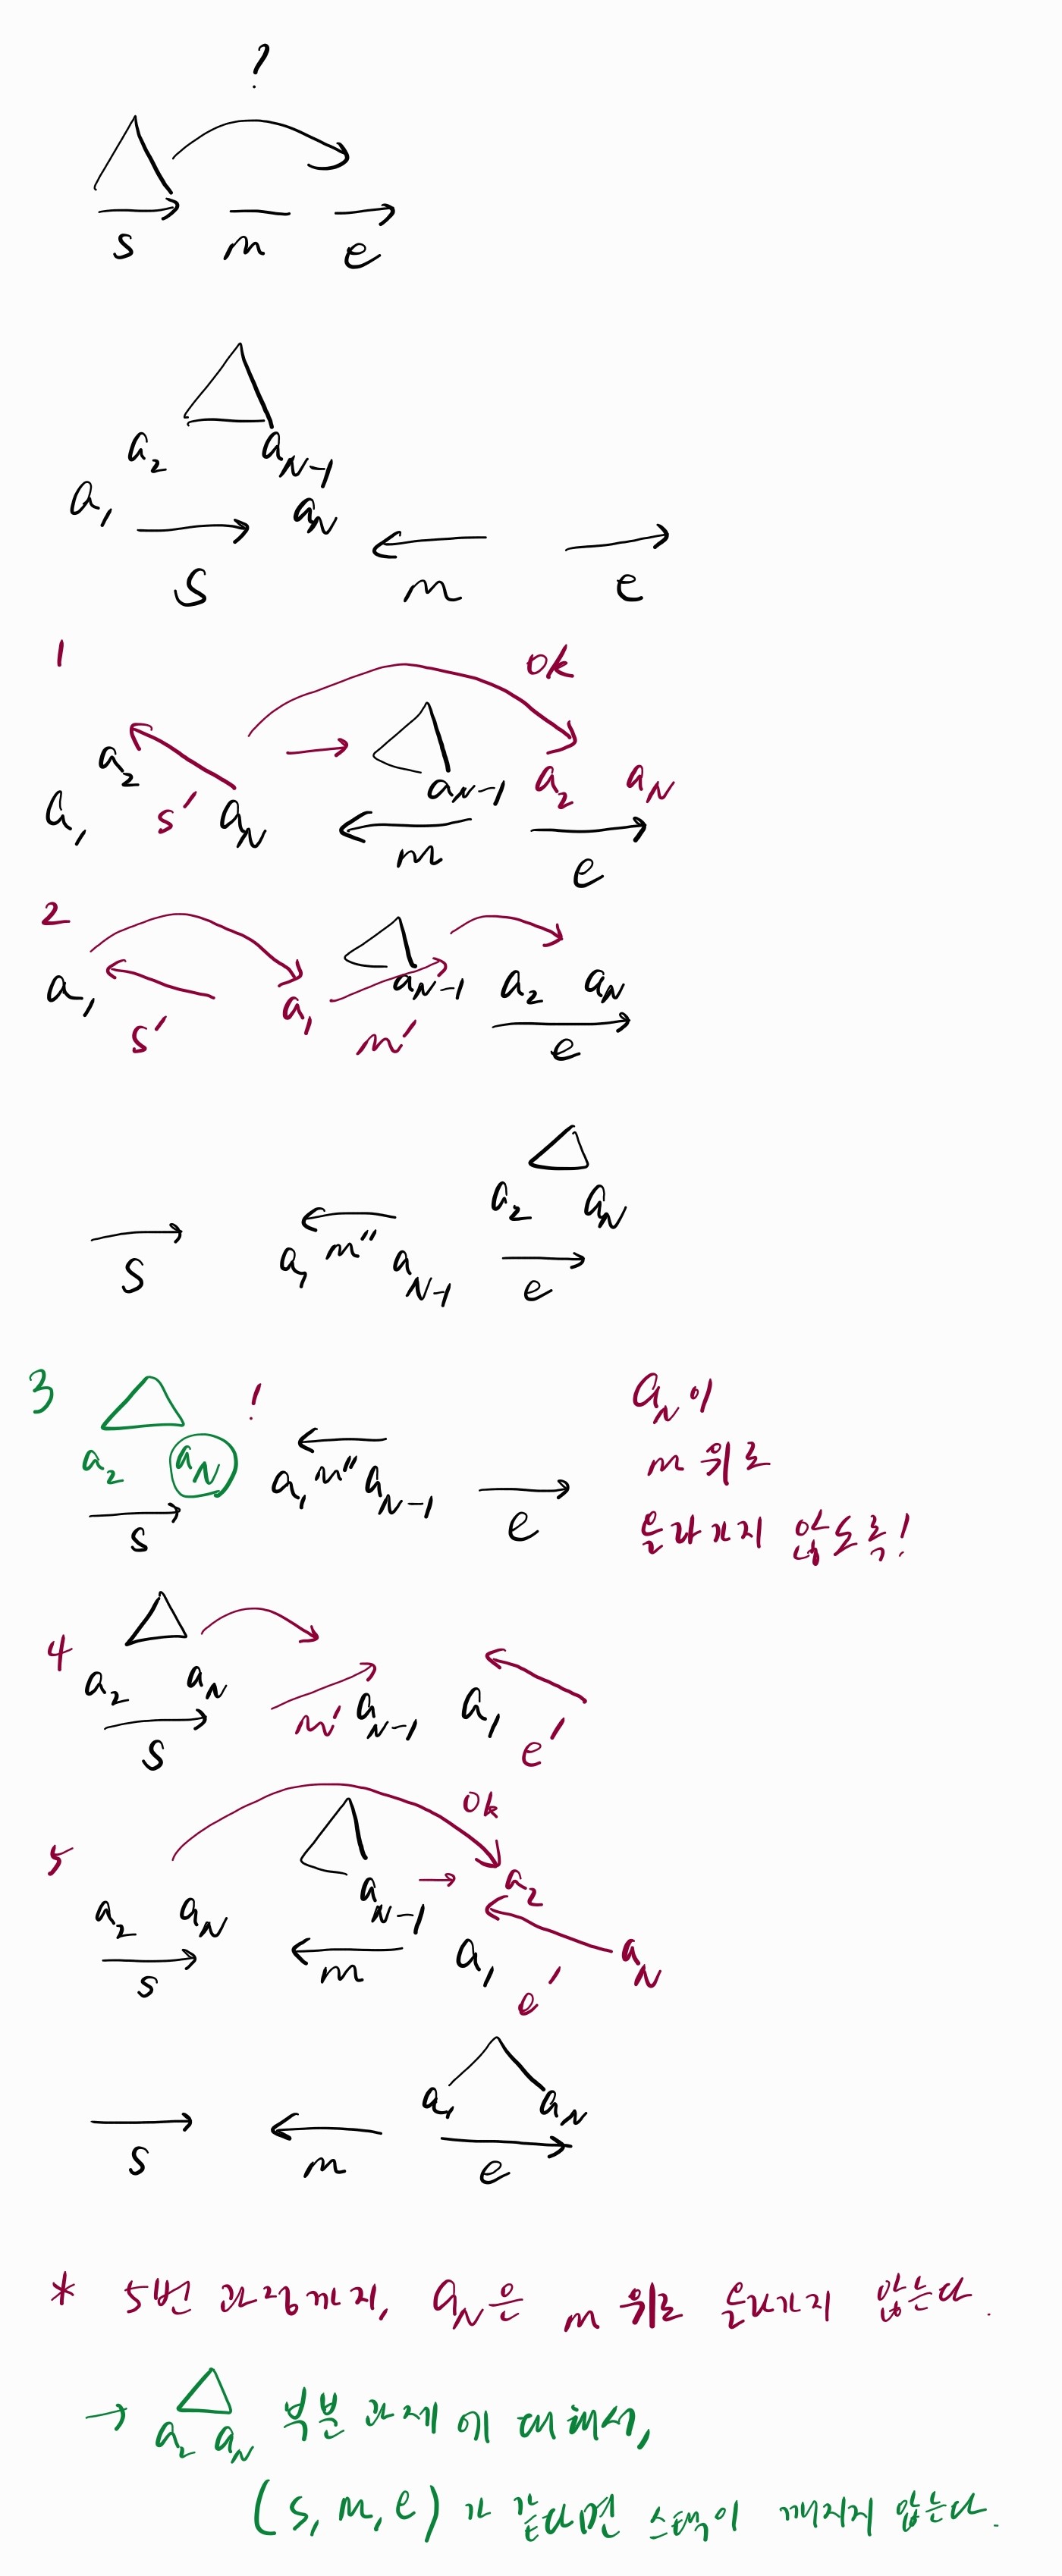 ?
s m e
a₂ a_N-1
a₁ a_N
s m e
1 ok
a₂ a_N-1 a₂ a_N
a₁ s′ a_N m e
2
a₁ a₁ a_N-1 a₂ a_N
s′ m′ e
a₂ a_N
s a₁ m″ a_N-1 e
3 ! a_N이
a₂ a_N a₁ m″ a_N-1 m 위로
s e 올라가지 않도록!
4
a₂ a_N m′ a_N-1 a₁ e′
s
5 ok
a₂ a_N a_N-1 → a₂
s m a₁ e′ a_N
a₁ a_N
s m e
* 5번 과정까지, a_N은 m 위로 올라가지 않는다.
→ △ 부분 과제에 대해서,
a₂ a_N
(s, m, e)가 같다면 스택이 깨지지 않는다.